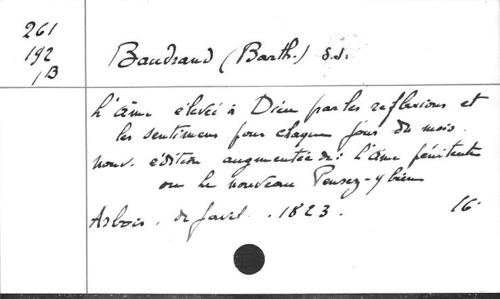 261
192
1B
Baudrand (Barth.) s.j.
L'âme élevée à Dieu par les reflexions et
les sentimens pour chaque jour du mois.
nouv. edition augmentée de: l'âme pénitente
ou le nouveau Pensez-y bien
Arbois. de Javel. 1823. 16°